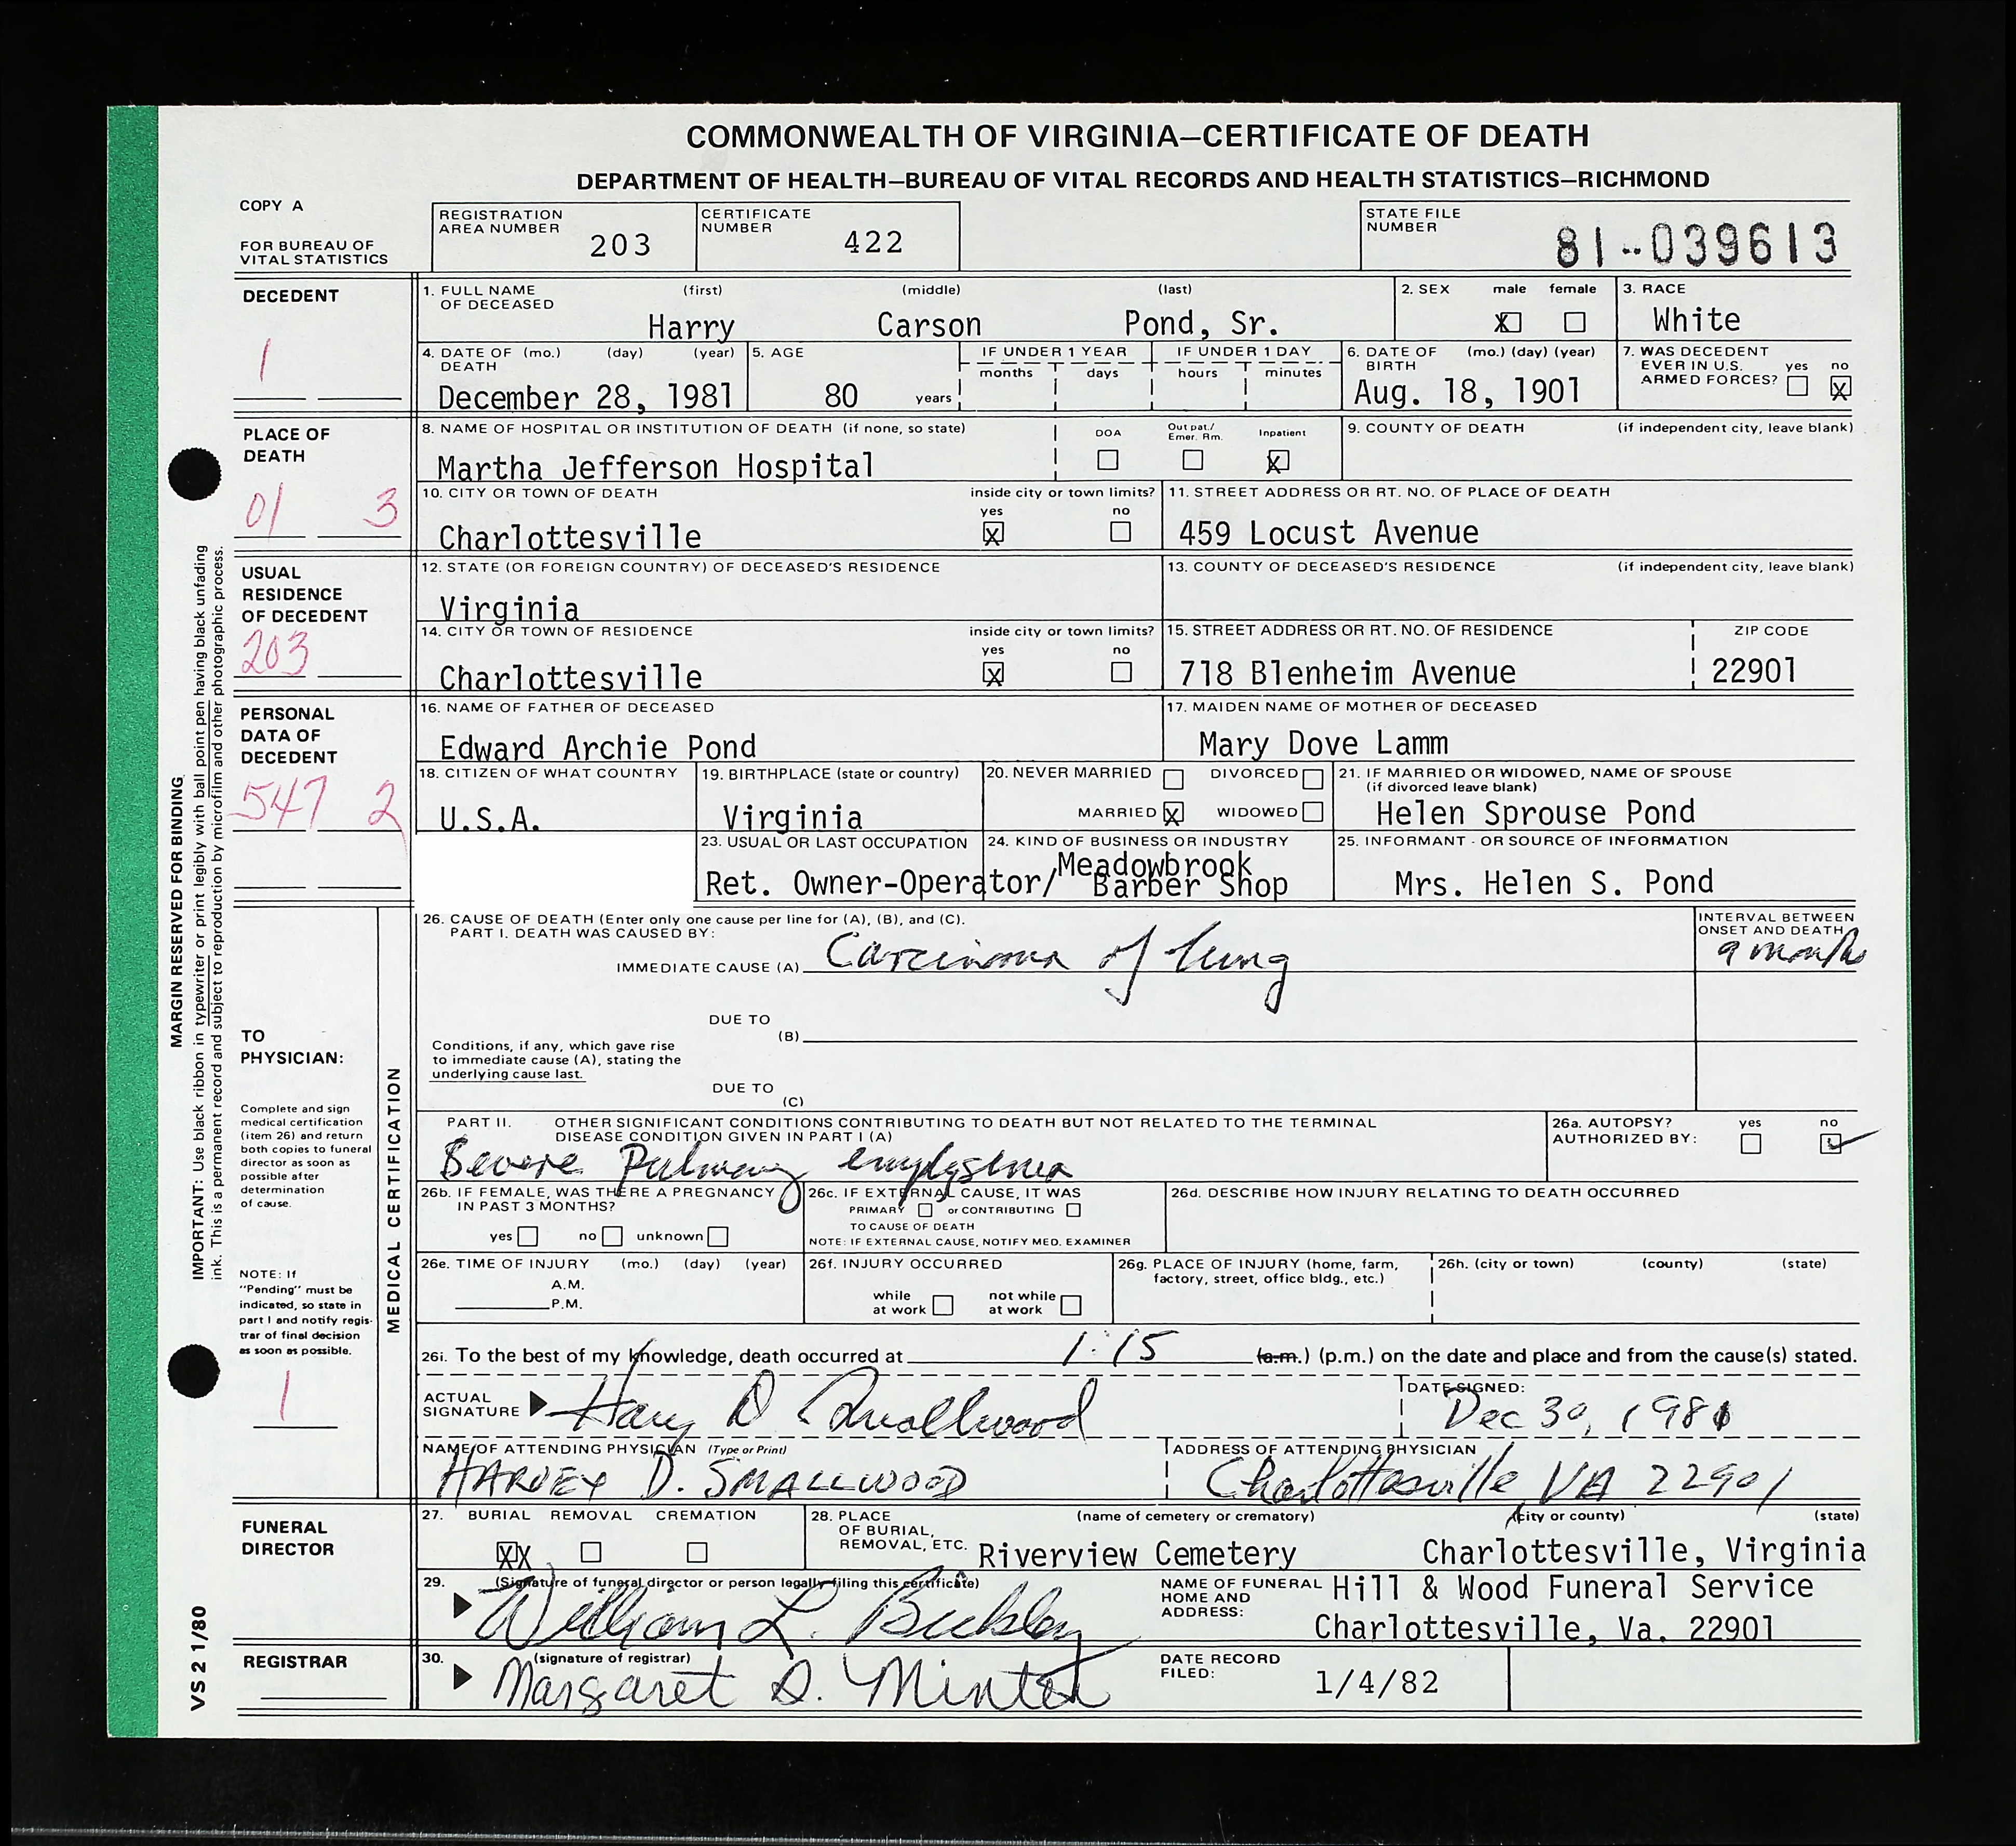 COMMONWEALTH OF VIRGINIA—CERTIFICATE OF DEATH
DEPARTMENT OF HEALTH—BUREAU OF VITAL RECORDS AND HEALTH STATISTICS—RICHMOND
COPY A
FOR BUREAU OF
VITAL STATISTICS
REGISTRATION
AREA NUMBER 203
CERTIFICATE
NUMBER 422
STATE FILE
NUMBER 81-039613
DECEDENT
1
1. FULL NAME (first) (middle) (last)
OF DECEASED
Harry Carson Pond, Sr.
2. SEX male female
X
3. RACE
White
4. DATE OF (mo.) (day) (year)
DEATH
December 28, 1981
5. AGE
80 years
IF UNDER 1 YEAR
months days
IF UNDER 1 DAY
hours minutes
6. DATE OF (mo.) (day) (year)
BIRTH
Aug. 18, 1901
7. WAS DECEDENT
EVER IN U.S. yes no
ARMED FORCES? X
PLACE OF
DEATH
01 3
8. NAME OF HOSPITAL OR INSTITUTION OF DEATH (if none, so state)
Martha Jefferson Hospital
DOA Out pat./ Emer. Rm. Inpatient
X
9. COUNTY OF DEATH (if independent city, leave blank)
10. CITY OR TOWN OF DEATH inside city or town limits?
yes no
Charlottesville X
11. STREET ADDRESS OR RT. NO. OF PLACE OF DEATH
459 Locust Avenue
USUAL
RESIDENCE
OF DECEDENT
203
12. STATE (OR FOREIGN COUNTRY) OF DECEASED'S RESIDENCE
Virginia
13. COUNTY OF DECEASED'S RESIDENCE (if independent city, leave blank)
14. CITY OR TOWN OF RESIDENCE inside city or town limits?
yes no
Charlottesville X
15. STREET ADDRESS OR RT. NO. OF RESIDENCE ZIP CODE
718 Blenheim Avenue 22901
PERSONAL
DATA OF
DECEDENT
547 2
16. NAME OF FATHER OF DECEASED
Edward Archie Pond
17. MAIDEN NAME OF MOTHER OF DECEASED
Mary Dove Lamm
18. CITIZEN OF WHAT COUNTRY
U.S.A.
19. BIRTHPLACE (state or country)
Virginia
20. NEVER MARRIED DIVORCED
MARRIED X WIDOWED
21. IF MARRIED OR WIDOWED, NAME OF SPOUSE
(if divorced leave blank)
Helen Sprouse Pond
23. USUAL OR LAST OCCUPATION
Ret. Owner-Operator/
24. KIND OF BUSINESS OR INDUSTRY
Meadowbrook
Barber Shop
25. INFORMANT - OR SOURCE OF INFORMATION
Mrs. Helen S. Pond
MARGIN RESERVED FOR BINDING
IMPORTANT: Use black ribbon in typewriter or print legibly with ball point pen having black unfading
ink. This is a permanent record and subject to reproduction by microfilm and other photographic process.
TO
PHYSICIAN:
Complete and sign
medical certification
(item 26) and return
both copies to funeral
director as soon as
possible after
determination
of cause.
NOTE: If
"Pending" must be
indicated, so state in
part I and notify regis-
trar of final decision
as soon as possible.
1
MEDICAL CERTIFICATION
26. CAUSE OF DEATH (Enter only one cause per line for (A), (B), and (C).
PART I. DEATH WAS CAUSED BY:
IMMEDIATE CAUSE (A) Carcinoma of lung
INTERVAL BETWEEN
ONSET AND DEATH
9 months
DUE TO
(B)
Conditions, if any, which gave rise
to immediate cause (A), stating the
underlying cause last.
DUE TO
(C)
PART II. OTHER SIGNIFICANT CONDITIONS CONTRIBUTING TO DEATH BUT NOT RELATED TO THE TERMINAL
DISEASE CONDITION GIVEN IN PART I (A)
Severe Pulmonary emphysema
26a. AUTOPSY? yes no
AUTHORIZED BY: ✓
26b. IF FEMALE, WAS THERE A PREGNANCY
IN PAST 3 MONTHS?
yes no unknown
26c. IF EXTERNAL CAUSE, IT WAS
PRIMARY or CONTRIBUTING
TO CAUSE OF DEATH
NOTE: IF EXTERNAL CAUSE, NOTIFY MED. EXAMINER
26d. DESCRIBE HOW INJURY RELATING TO DEATH OCCURRED
26e. TIME OF INJURY (mo.) (day) (year)
A.M.
P.M.
26f. INJURY OCCURRED
while not while
at work at work
26g. PLACE OF INJURY (home, farm,
factory, street, office bldg., etc.)
26h. (city or town) (county) (state)
26i. To the best of my knowledge, death occurred at 1:15 (a.m.) (p.m.) on the date and place and from the cause(s) stated.
ACTUAL
SIGNATURE Harvey D Smallwood
DATE SIGNED:
Dec 30, 1981
NAME OF ATTENDING PHYSICIAN (Type or Print)
HARVEY D. SMALLWOOD
ADDRESS OF ATTENDING PHYSICIAN
Charlottesville, VA 22901
FUNERAL
DIRECTOR
27. BURIAL REMOVAL CREMATION
XX
28. PLACE (name of cemetery or crematory) (city or county) (state)
OF BURIAL,
REMOVAL, ETC. Riverview Cemetery Charlottesville, Virginia
29. (Signature of funeral director or person legally filing this certificate)
William L.
NAME OF FUNERAL
HOME AND
ADDRESS:
Hill & Wood Funeral Service
Charlottesville, Va. 22901
REGISTRAR
30. (signature of registrar)
Margaret D. Minter
DATE RECORD
FILED: 1/4/82
VS 2 1/80